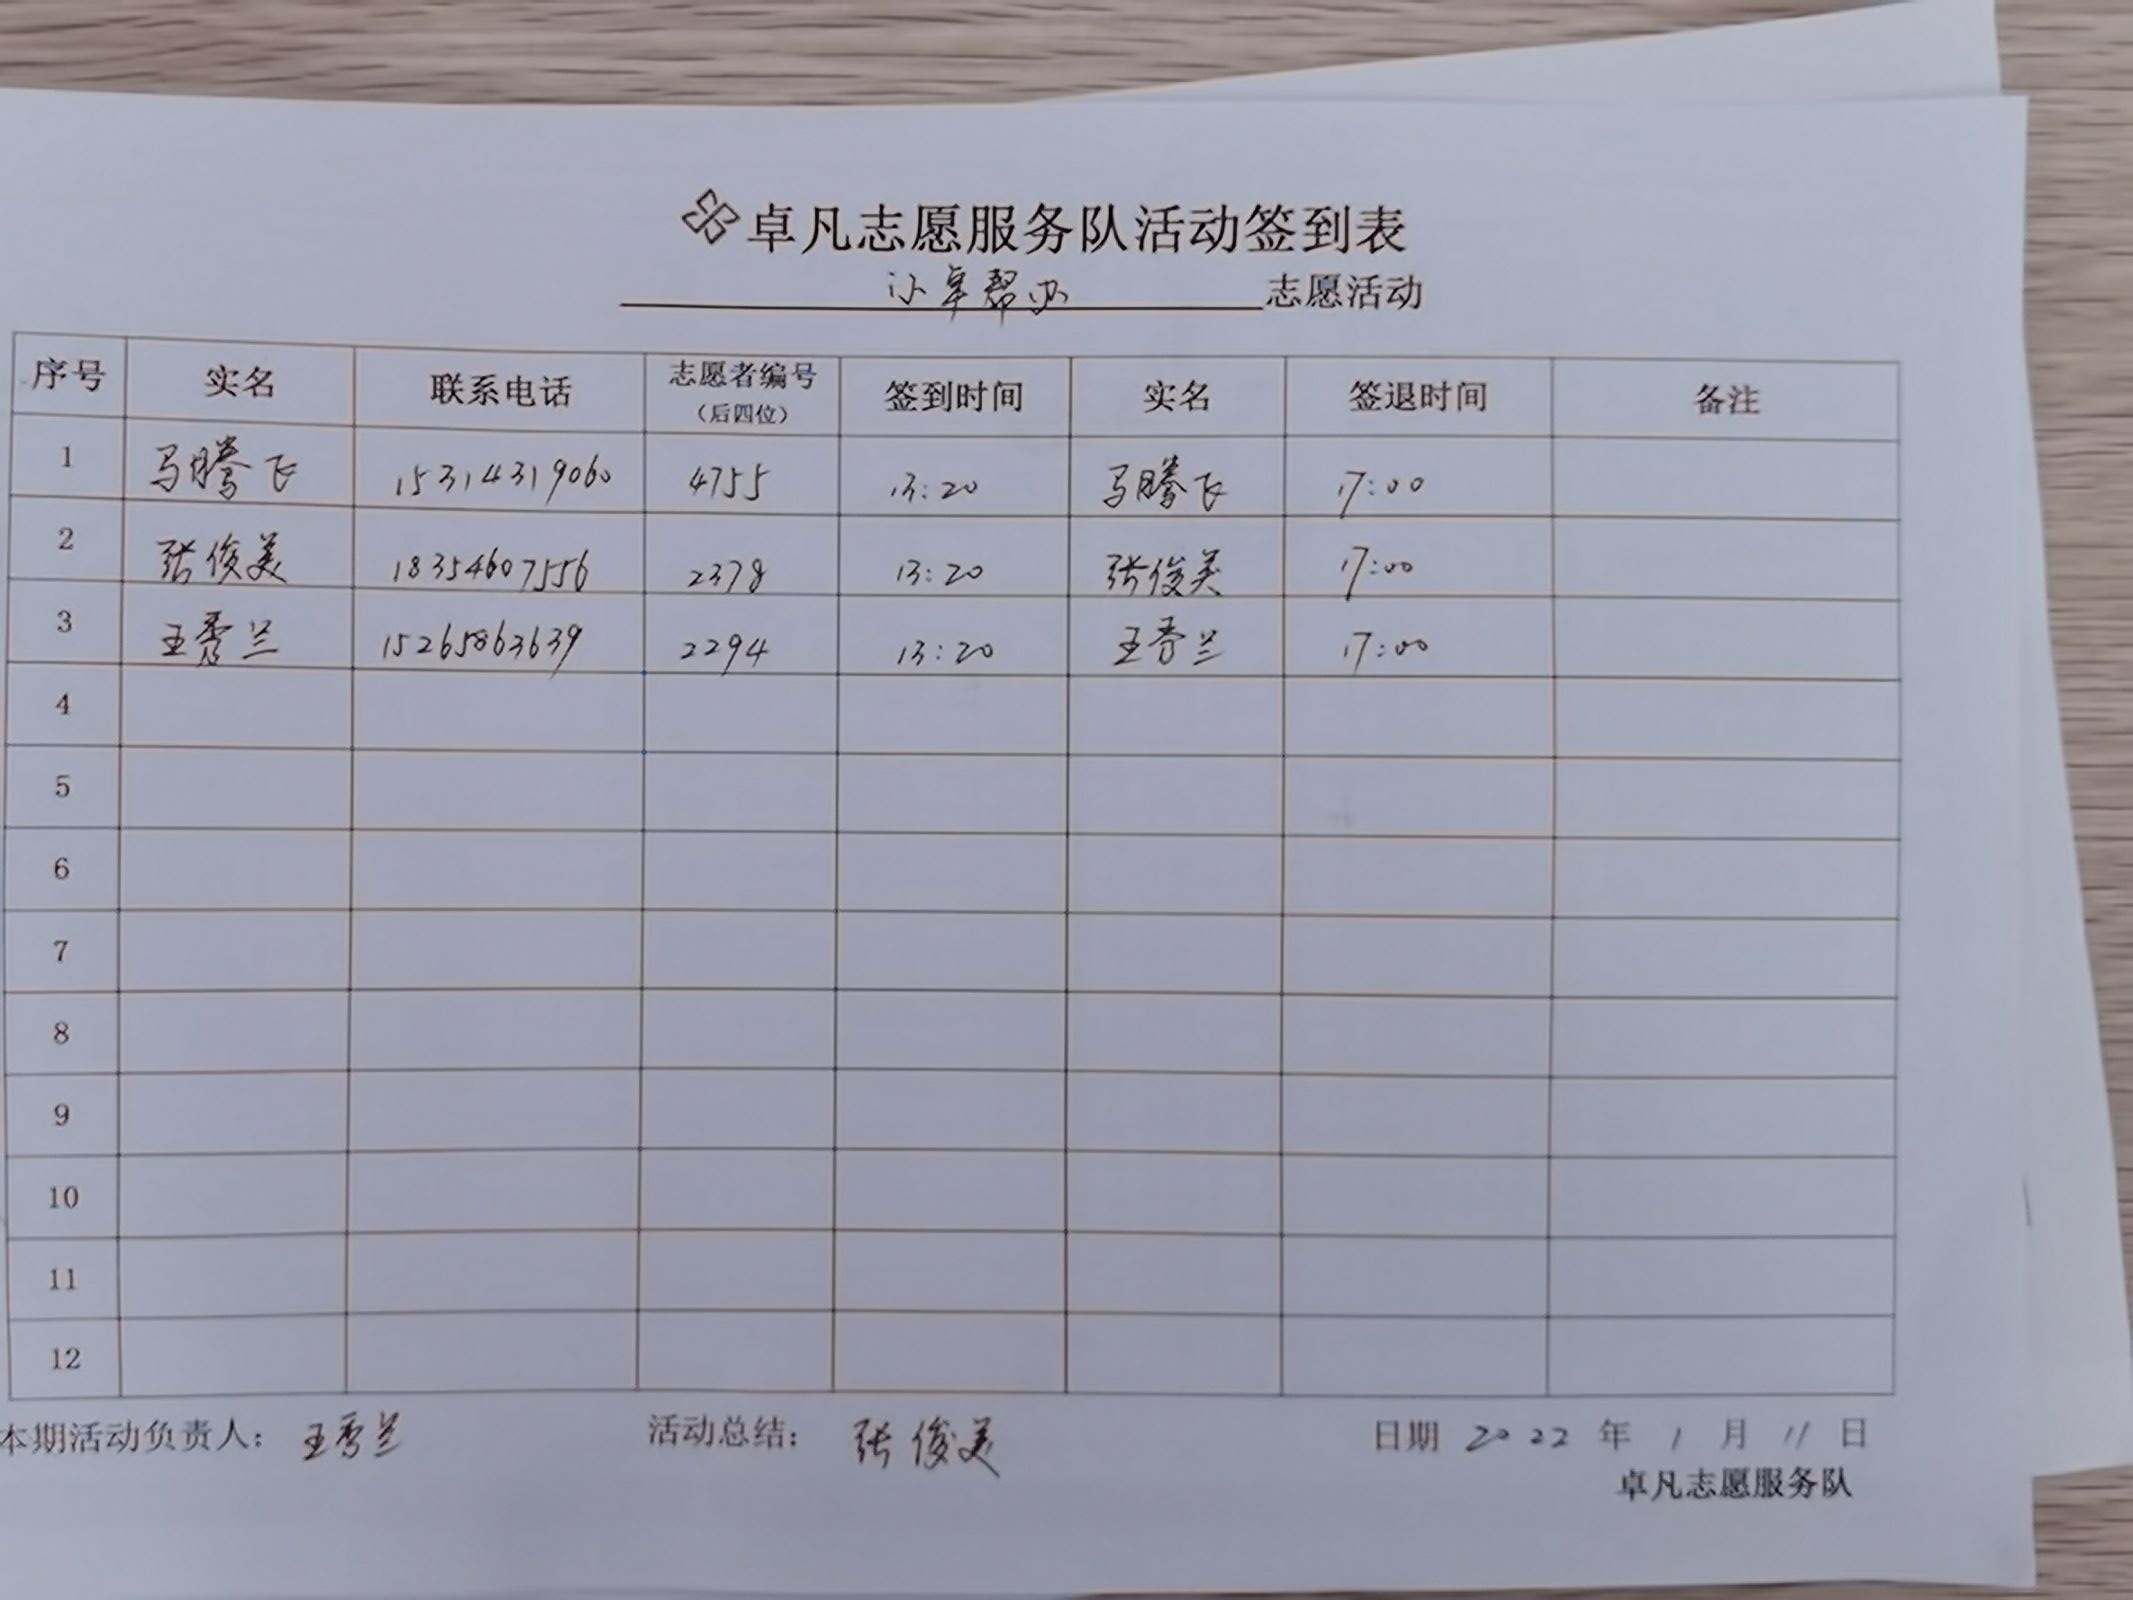 卓凡志愿服务队活动签到表
小卓帮办 志愿活动
序号 实名 联系电话 志愿者编号（后四位） 签到时间 实名 签退时间 备注
1 马腾飞 15314319060 4755 13:20 马腾飞 17:00
2 张俊美 18354607556 2378 13:20 张俊美 17:00
3 王秀兰 15265863639 2294 13:20 王秀兰 17:00
4
5
6
7
8
9
10
11
12
本期活动负责人：王秀兰 活动总结：张俊美 日期 2022 年 1 月 11 日
卓凡志愿服务队